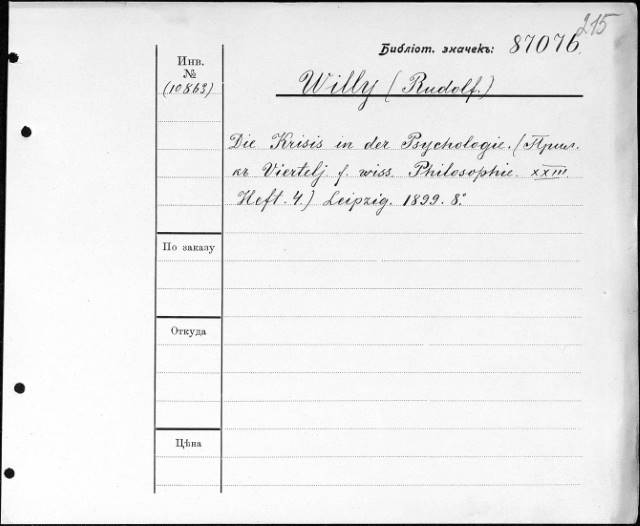 215
Библіот. значекъ: 87076.
Инв.
№
(10863)
Willy (Rudolf.)
Die Krisis in der Psychologie. (Прил.
къ Viertelj f. wiss. Philosophie. XXIII.
Heft. 4.) Leipzig. 1899. 8º
По заказу
Откуда
Цѣна